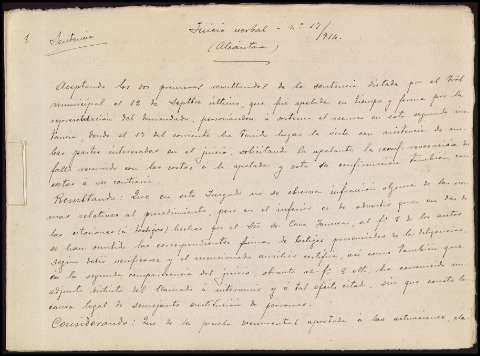 1 Sentencia
Juicio verbal - nº 17/914.
(Alcántara)
Aceptando los dos primeros resultandos de la sentencia dictada por el Trbl
municipal el 12 de Septbre último, que fué apelada en tiempo y forma por la
representación del demandado, personándose a sostener el recurso en esta segunda ins
tancia donde el 17 del corriente ha tenido lugar la vista con asistencia de am
bas partes interesadas en el juicio, solicitando la apelante la revocación del
fallo recurrido con las costas a la apelada y esta su confirmación también con
costas a su contrario
Resultando: Que en este Juzgado no se observa infracción alguna de las nor
mas relativas al procedimiento, pero en el inferior es de advertir que en dos de
las citaciones (a testigos) hechas por el de Casa al fº 8 de los autos
se han omitido las correspondientes firmas de testigos presenciales de la diligencia,
según debió verificarse y el mencionado certifica, así como también que
en la segunda comparecencia del juicio, obrante al fº 9 vtº, ha concurrido un
adjunto distinto del llamado a intervenir y a tal efecto citado, sin que conste la
causa legal de semejante sustitución de personas.
Considerando: Que de la prueba documental aportada a las actuaciones, cla